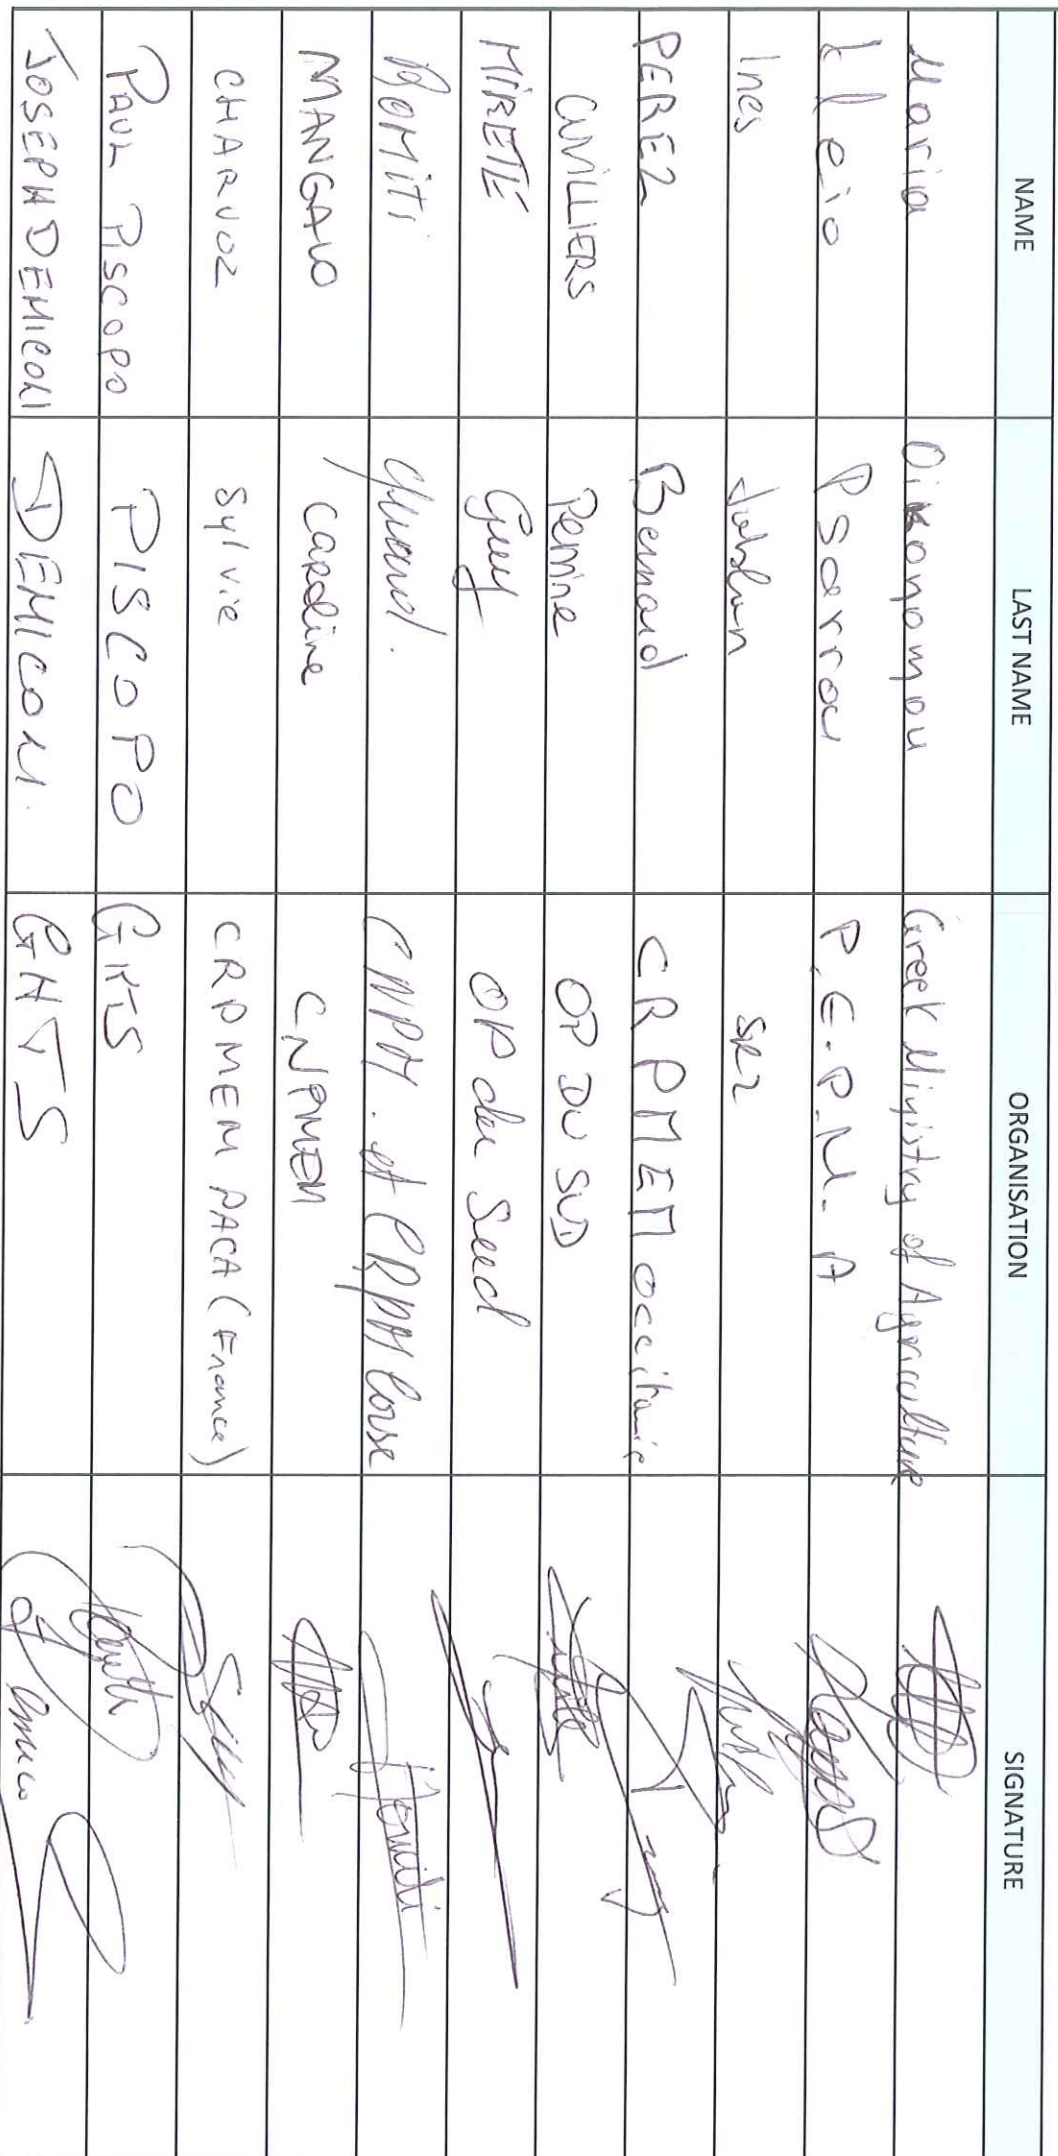 NAME LAST NAME ORGANISATION SIGNATURE
Maria Oikonomou Greek Ministry of Agriculture
Kleio Psarrou P.E.P.M.A
Ines SR2
PEREZ Bernard CRPMEM occitanie
CUVILLIERS Perrine OP DU SUD
MIRETE Guy OP du Sud
BOMITI Gérard. CNPM. et CRPM Corse
MANGALO Caroline CNPMEM
CHARVOZ Sylvie CRPMEM PACA (France)
PAUL PISCOPO PISCOPO GKTS
JOSEPH DEMICOLI DEMICOLI. GHTS